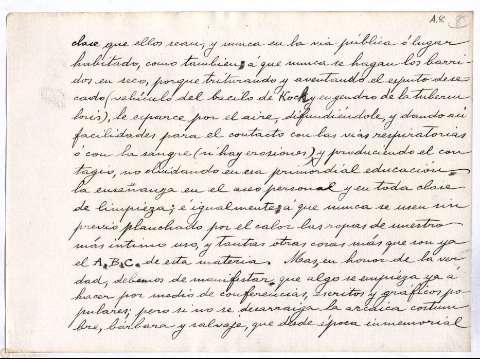 A.8.
clase que ellos sean, y nunca en la via pública ó lugar
habitado, como tambien, á que nunca se hagan los barri-
dos en seco, porque triturando y aventando el esputo dese-
cado (vehículo del bacilo de Koch y engendro de la tubercu-
losis), le esparce por el aire, difundiéndole, y dando así
facilidades para el contacto con las vías respiratorias
ó con la sangre (si hay erosiones), y produciendo el con-
tagio, no olvidando en esa primordial educación,
la enseñanza en el aseo personal y en toda clase
de limpieza; é igualmente, á que nunca se usen sin
previo planchado por el calor las ropas de nuestro
más íntimo uso, y tantas otras cosas más que son ya
el A.B.C. de esta materia. Mas, en honor de la ver-
dad, debemos de manifestar que algo se empieza ya á
hacer por medio de conferencias, escritos y gráficos po-
pulares; pero si no se desarraiga la arcáica costum-
bre, bárbara y salvaje, que desde época inmemorial